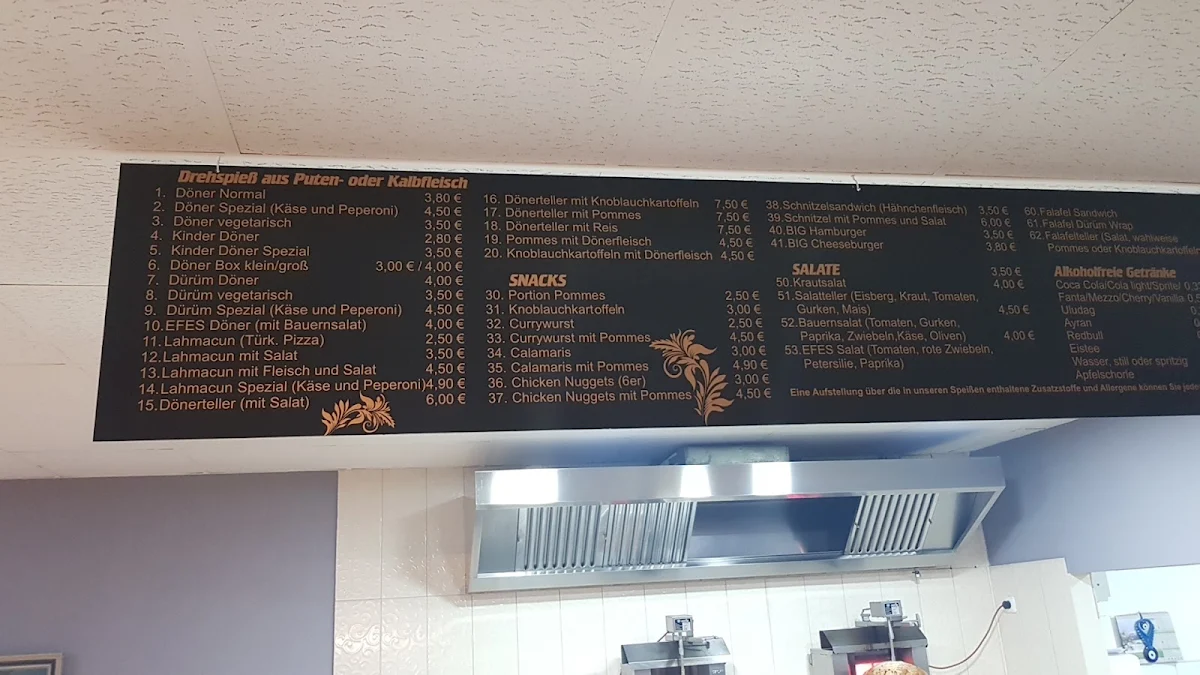 Drehspieß aus Puten- oder Kalbfleisch
1. Döner Normal 3,80 €
2. Döner Spezial (Käse und Peperoni) 4,50 €
3. Döner vegetarisch 3,50 €
4. Kinder Döner 2,80 €
5. Kinder Döner Spezial 3,50 €
6. Döner Box klein/groß 3,00 € / 4,00 €
7. Dürüm Döner 4,00 €
8. Dürüm vegetarisch 3,50 €
9. Dürüm Spezial (Käse und Peperoni) 4,50 €
10. EFES Döner (mit Bauernsalat) 4,00 €
11. Lahmacun (Türk. Pizza) 2,50 €
12. Lahmacun mit Salat 3,50 €
13. Lahmacun mit Fleisch und Salat 4,50 €
14. Lahmacun Spezial (Käse und Peperoni) 4,90 €
15. Dönerteller (mit Salat) 6,00 €
16. Dönerteller mit Knoblauchkartoffeln 7,50 €
17. Dönerteller mit Pommes 7,50 €
18. Dönerteller mit Reis 7,50 €
19. Pommes mit Dönerfleisch 4,50 €
20. Knoblauchkartoffeln mit Dönerfleisch 4,50 €
SNACKS
30. Portion Pommes 2,50 €
31. Knoblauchkartoffeln 3,00 €
32. Currywurst 2,50 €
33. Currywurst mit Pommes 4,50 €
34. Calamaris 3,00 €
35. Calamaris mit Pommes 4,90 €
36. Chicken Nuggets (6er) 3,00 €
37. Chicken Nuggets mit Pommes 4,50 €
38. Schnitzelsandwich (Hähnchenfleisch) 3,50 €
39. Schnitzel mit Pommes und Salat 6,00 €
40. BIG Hamburger 3,50 €
41. BIG Cheeseburger 3,80 €
SALATE 3,50 €
50. Krautsalat 4,00 €
51. Salatteller (Eisberg, Kraut, Tomaten,
Gurken, Mais) 4,50 €
52. Bauernsalat (Tomaten, Gurken,
Paprika, Zwiebeln,Käse, Oliven) 4,00 €
53. EFES Salat (Tomaten, rote Zwiebeln,
Petersilie, Paprika)
60. Falafel Sandwich
61. Falafel Dürüm Wrap
62. Falafelteller (Salat, wahlweise
Pommes oder Knoblauchkartoffeln
Alkoholfreie Getränke
Coca Cola/Cola light/Sprite/ 0,3
Fanta/Mezzo/Cherry/Vanilla 0,5
Uludag
Ayran
Redbull
Eistee
Wasser, still oder spritzig
Apfelschorle
Eine Aufstellung über die in unseren Speißen enthaltene Zusatzstoffe und Allergene können Sie